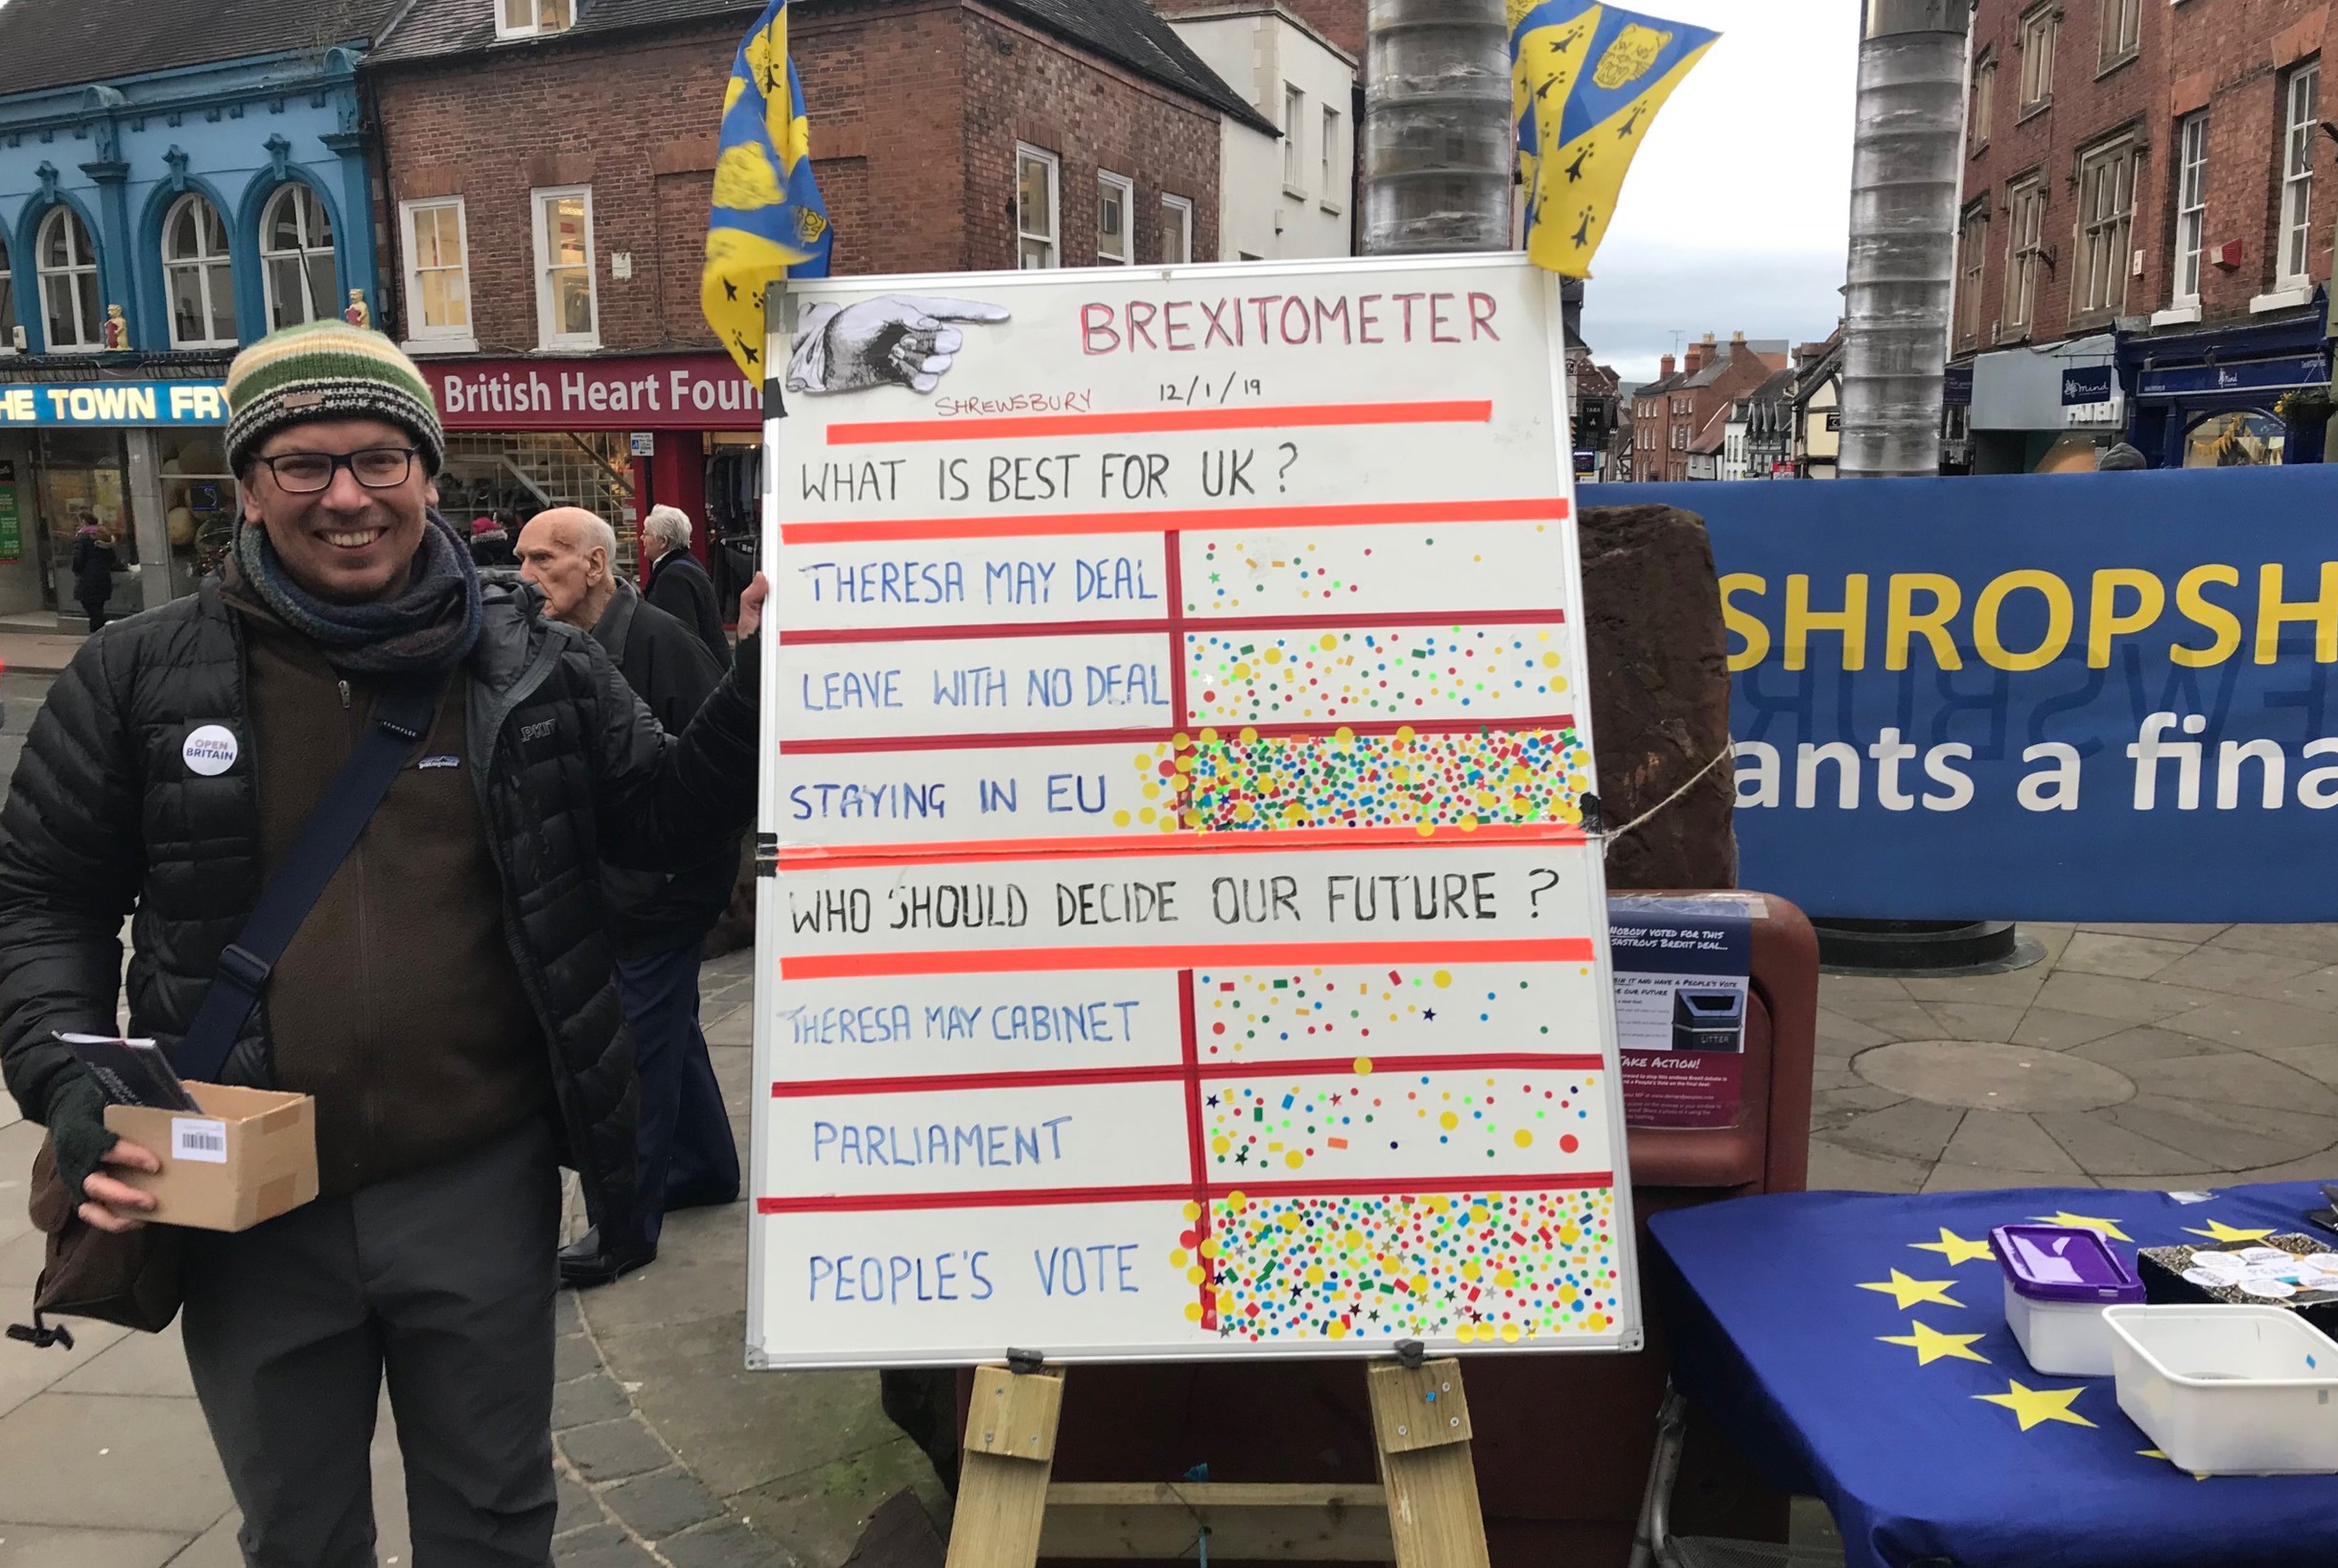 HE TOWN FRY
British Heart Foun
BREXITOMETER
SHREWSBURY 12/1/19
WHAT IS BEST FOR UK?
THERESA MAY DEAL
LEAVE WITH NO DEAL
STAYING IN EU
WHO SHOULD DECIDE OUR FUTURE?
THERESA MAY CABINET
PARLIAMENT
PEOPLE'S VOTE
OPEN
BRITAIN
patagonia
mind
SHROPSH
ants a fina
NOBODY VOTED FOR THIS
SASTROUS BREXIT DEAL...
BIN IT AND HAVE A PEOPLE'S VOTE
OUR FUTURE
LITTER
TAKE ACTION!